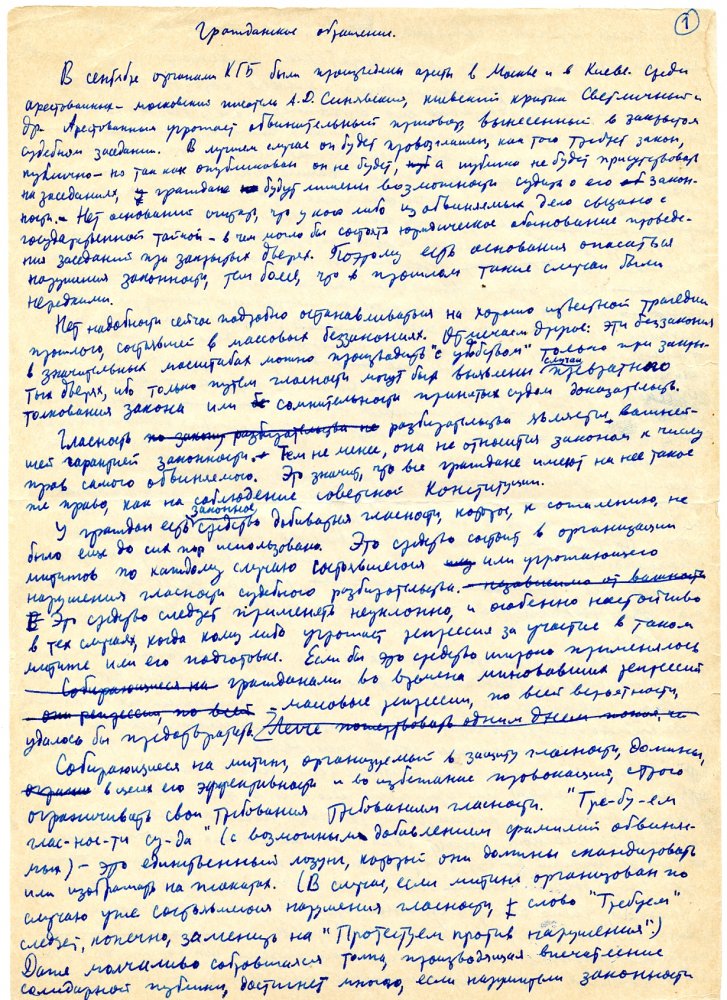 1
Гражданское обращение.
В сентябре органами КГБ были произведены аресты в Москве и в Киеве. Среди
арестованных – московский писатель А.Д. Синявский, киевский критик Светличный и
др. Арестованным угрожает обвинительный приговор, вынесенный в закрытом
судебном заседании. В лучшем случае он будет провозглашен, как того требует закон,
публично – но так как опубликован он не будет, а публика не будет присутствовать
на заседаниях, граждане будут лишены возможности судить о его закон-
ности. – Нет оснований считать, что у кого либо из обвиняемых дело связано с
государственной тайной – в чем могло бы состоять юридическое обоснование проведе-
ния заседаний при закрытых дверях. Поэтому есть основания опасаться
нарушения законности, тем более, что в прошлом такие случаи были
нередкими.
Нет надобности сейчас подробно останавливаться на хорошо известной трагедии
прошлого, состоявшей в массовых беззакониях. Отмечаем другое: эти беззакония
в значительных масштабах можно производить "с удобством" только при закры-
тых дверях, ибо только путем гласности могут быть выявлены случаи превратного
толкования закона или сомнительности принятых судом доказательств.
Гласность по закону разбирательства не разбирательства является важней-
шей гарантией законности. Тем не менее, она не относится законом к числу
прав самого обвиняемого. Это значит, что все граждане имеют на нее такое
же право, как на соблюдение советской Конституции.
У граждан есть законное средство добиваться гласности, которое, к сожалению, не
было еще до сих пор использовано. Это средство состоит в организации
митингов по каждому случаю состоявшегося или угрожающего
нарушения гласности судебного разбирательства. независимо от важности
Это средство следует применять неуклонно, и особенно настойчиво
в тех случаях, когда кому либо угрожает репрессия за участие в таком
митинге или его подготовке. Если бы это средство широко применялось
Собирающиеся на гражданами во времена миновавших репрессий
они репрессии, по всей – массовые репрессии, по всей вероятности,
удалось бы предотвратить. Легче пожертвовать одним днем покоя,
Собирающиеся на митинг, организуемый в защиту гласности, должны,
в целях его эффективности и во избежание провокаций, строго
ограничивать свои требования требованием гласности. "Тре-бу-ем
глас-нос-ти су-да" (с возможным добавлением фамилий обвиня-
мых) – это единственный лозунг, который они должны скандировать
или изображать на плакатах. (В случае, если митинг организован по
случаю уже состоявшегося нарушения гласности, слово "Требуем"
следует, конечно, заменить на "Протестуем против нарушения".)
Даже молчаливо собравшаяся толпа, производящая впечатление
солидарной публики, достигнет многого, если нарушители законности